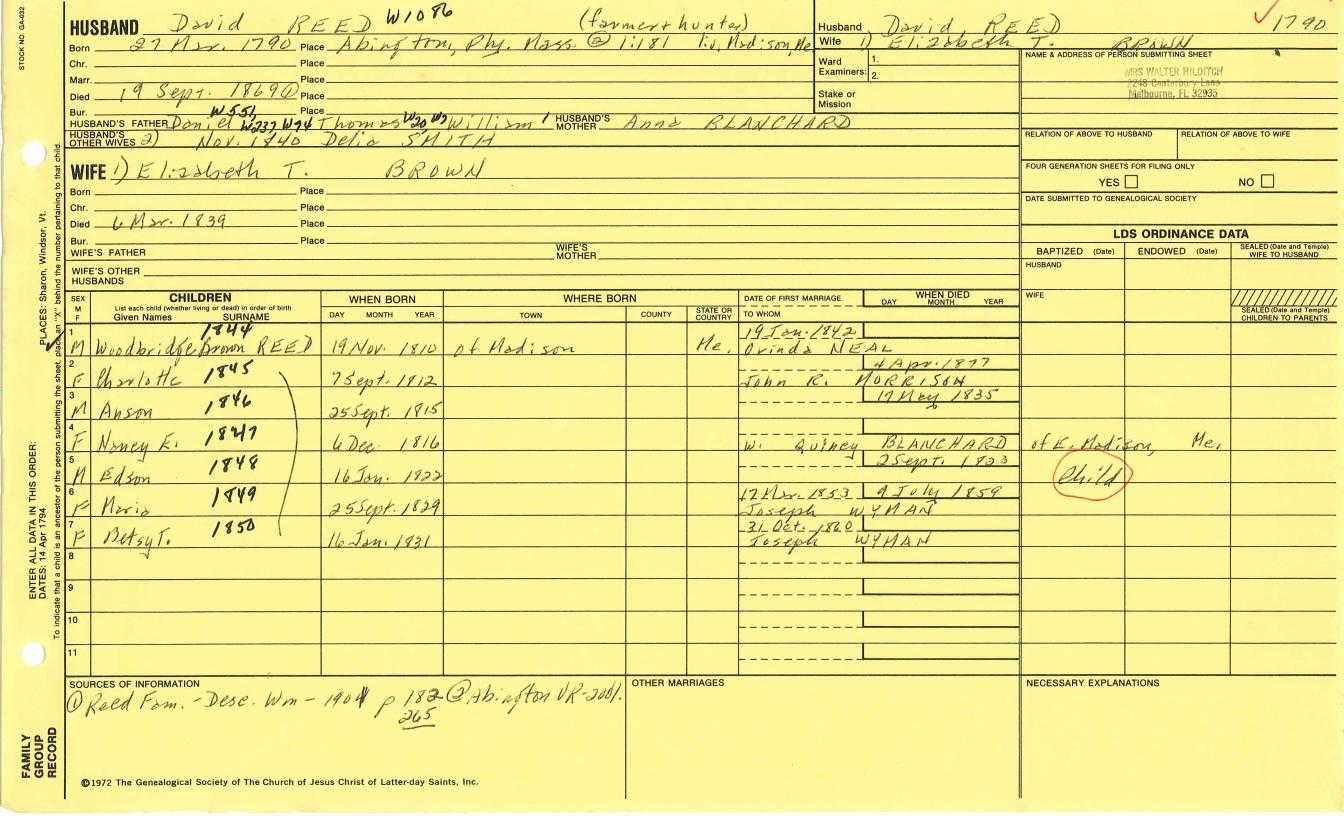 STOCK NO. GA-032
PLACES: Sharon, Windsor, Vt.
ENTER ALL DATA IN THIS ORDER:
DATES: 14 Apr 1794
To indicate that a child is an ancestor of the person submitting the sheet, place an "X" behind the number pertaining to that child.
FAMILY GROUP RECORD
HUSBAND David REED W1086 (farmer+hunter)
Born 27 Mar. 1790 Place Abington, Ply. Mass. ② 1:181 liv. Madison, Me
Chr. Place
Marr. Place
Died 19 Sept. 1869① Place
Bur. Place
W551
HUSBAND'S FATHER Daniel W237 W74 Thomas W20 W7 William 1 HUSBAND'S MOTHER Anna BLANCHARD
HUSBAND'S OTHER WIVES 2) Nov. 1840 Delia SMITH
WIFE 1) Elizabeth T. BROWN
Born Place
Chr. Place
Died 6 Mar. 1839 Place
Bur. Place
WIFE'S FATHER WIFE'S MOTHER
WIFE'S OTHER HUSBANDS
Husband David REED 1790
Wife 1) Elizabeth T. BROWN
Ward Examiners: 1.
2.
Stake or Mission
NAME & ADDRESS OF PERSON SUBMITTING SHEET
MRS WALTER HILDITCH
2248 Canterbury Lane
Melbourne, FL 32935
RELATION OF ABOVE TO HUSBAND RELATION OF ABOVE TO WIFE
FOUR GENERATION SHEETS FOR FILING ONLY
YES NO
DATE SUBMITTED TO GENEALOGICAL SOCIETY
LDS ORDINANCE DATA
BAPTIZED (Date) ENDOWED (Date) SEALED (Date and Temple) WIFE TO HUSBAND
HUSBAND
WIFE
SEALED (Date and Temple) CHILDREN TO PARENTS
SEX M F
CHILDREN
List each child (whether living or dead) in order of birth
Given Names SURNAME
WHEN BORN
DAY MONTH YEAR
WHERE BORN
TOWN COUNTY STATE OR COUNTRY
DATE OF FIRST MARRIAGE
TO WHOM
WHEN DIED
DAY MONTH YEAR
1 1844 19 Jan. 1842
M Woodbridge Brown REED 19 Nov. 1810 of Madison Me. Orinda NEAL
2 1845 4 Apr. 1877
F Charlotte 7 Sept. 1812 John R. MORRISON
3 1846 17 May 1835
M Anson 25 Sept. 1815
4 1847
F Nancy E. 6 Dec. 1816 W. Quincy BLANCHARD of E. Madison, Me.
5 1848 2 Sept. 1823
M Edson 16 Jan. 1822 Child
6 1849 17 Mar. 1853 9 July 1859
F Maria 25 Sept. 1829 Joseph WYMAN
7 1850 31 Oct. 1860
F Betsy T. 16 Jan. 1831 Joseph WYMAN
8
9
10
11
SOURCES OF INFORMATION
① Reed Fam. - Desc. Wm - 1901 p 182 ② Abington VR-2001.
265
OTHER MARRIAGES
NECESSARY EXPLANATIONS
©1972 The Genealogical Society of The Church of Jesus Christ of Latter-day Saints, Inc.